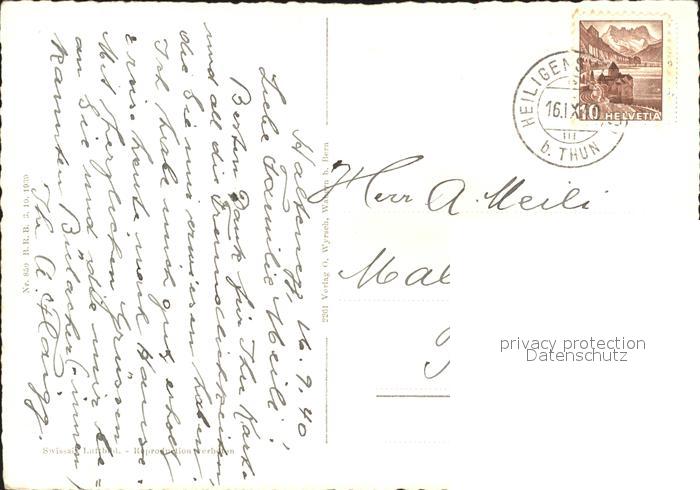 Halteneg, 16.9.40
Liebe Familie Meili!
Besten Dank für Ihre Karte
und all die Freundlichkeiten
die Sie mir erwiesen haben.
Ich habe mich gut erholt
reise heute nach Hause.
Mit herzlichen Grüssen
an Sie und alle mir be=
kannten Bülacher(innen)
Ihr A.
Nr. 850 B.R.B. 3. 10. 1939
Swissair Luftbild. - Reproduktion verboten
2261 Verlag O. Wyrsch, Wabern b. Bern
HEILIGENS
16.IX.40
III
b. THUN
10
HELVETIA
Herr A. Meili
Mal
privacy protection
Datenschutz